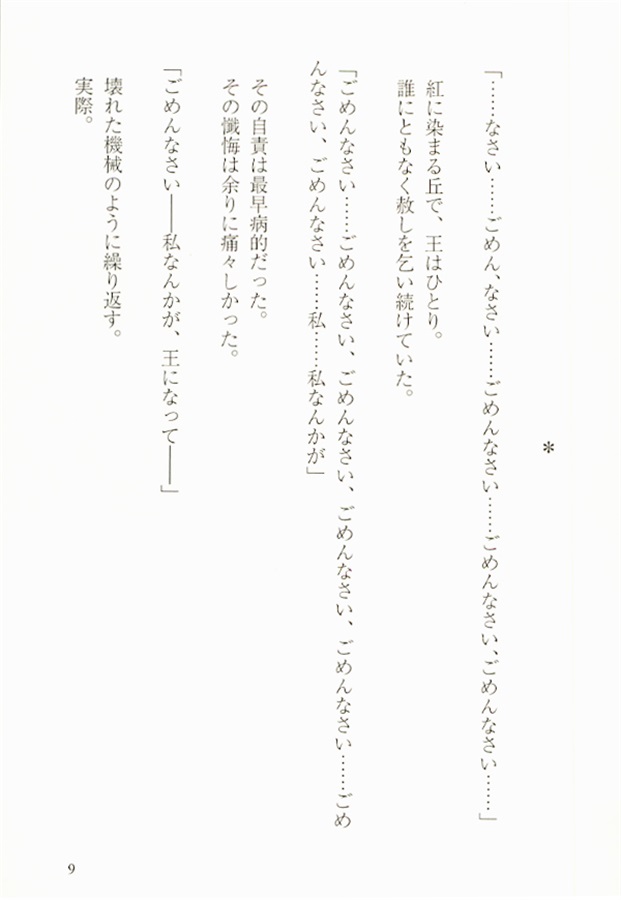 *
「……なさい……ごめん、なさい……ごめんなさい……ごめんなさい、ごめんなさい……」
紅に染まる丘で、王はひとり。
誰にともなく赦しを乞い続けていた。
「ごめんなさい……ごめんなさい、ごめんなさい、ごめんなさい、ごめんなさい……ごめ
んなさい、ごめんなさい……私……私なんかが」
その自責は最早病的だった。
その懺悔は余りに痛々しかった。
「ごめんなさい――私なんかが、王になって――」
壊れた機械のように繰り返す。
実際。
9